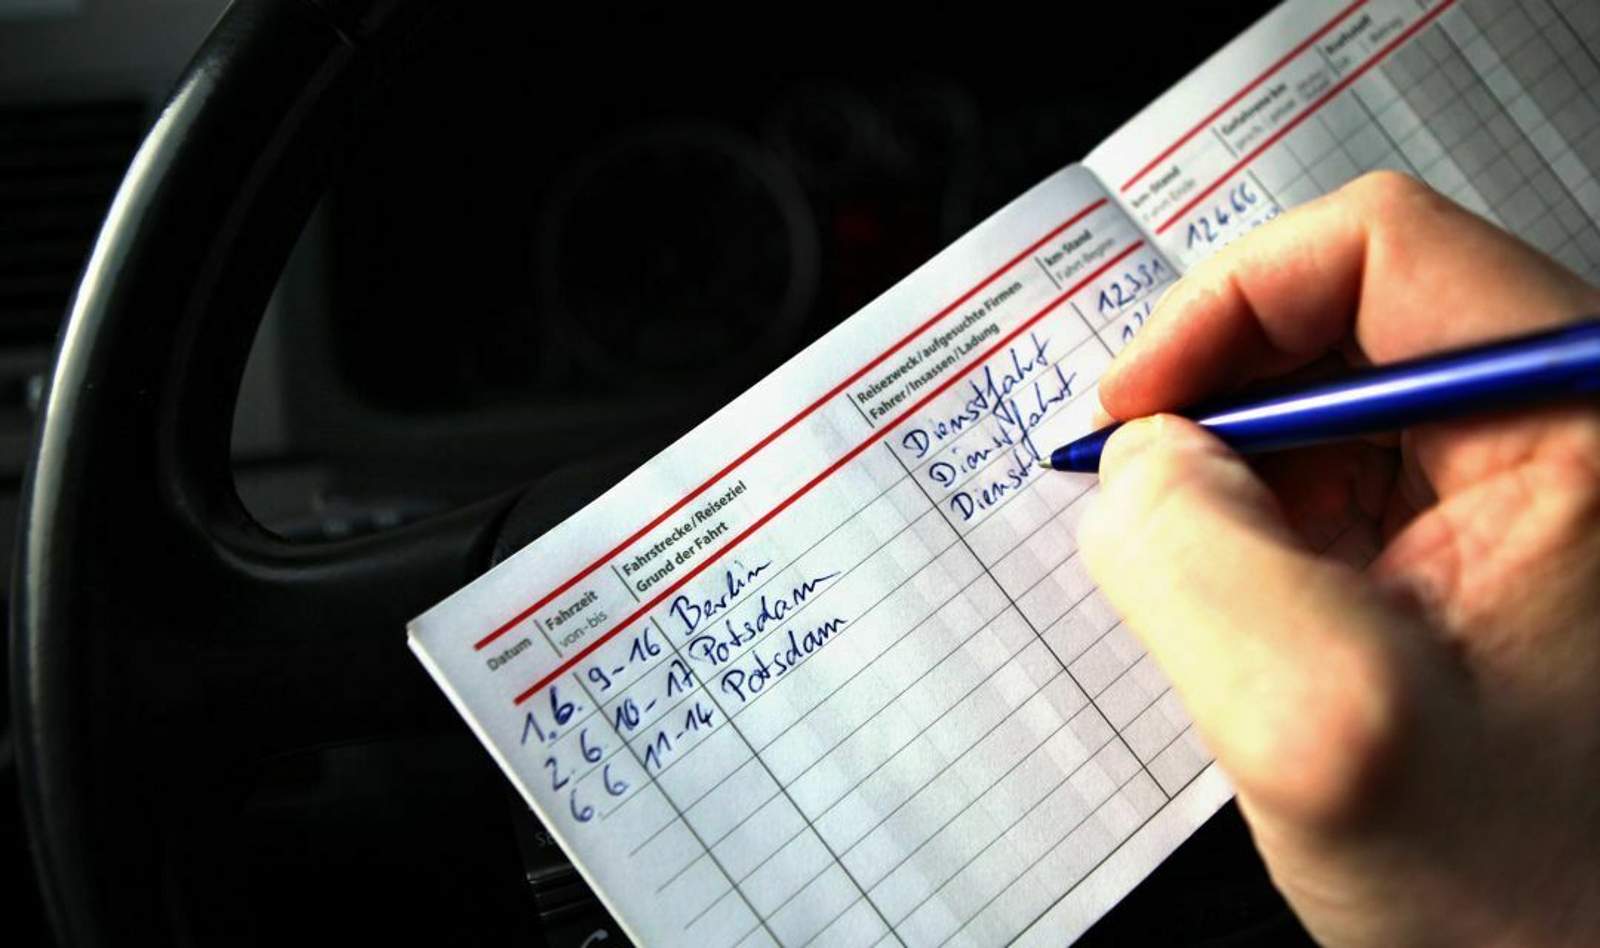 Datum
Fahrzeit
von-bis
Fahrstrecke/Reiseziel
Grund der Fahrt
Reisezweck/aufgesuchte Firmen
Fahrer/Insassen/Ladung
km-Stand
Fahrt Beginn
km-Stand
Fahrt Ende
Gefahrene km
1.6. 9-16 Berlin Dienstfahrt 12351 12466
2.6. 10-17 Potsdam Dienstfahrt
6.6. 11-14 Potsdam Dienst